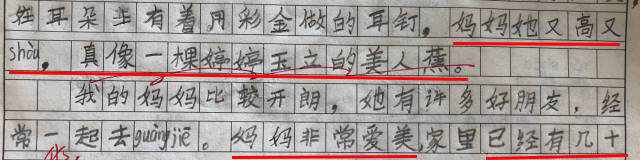 姓耳朵上有着用彩金做的耳钉。妈妈她又高又
shòu。真像一棵婷婷玉立的美人蕉。
我的妈妈比较开朗，她有许多好朋友，经
常一起去guàngjiē。妈妈非常爱美,家里已经有几十